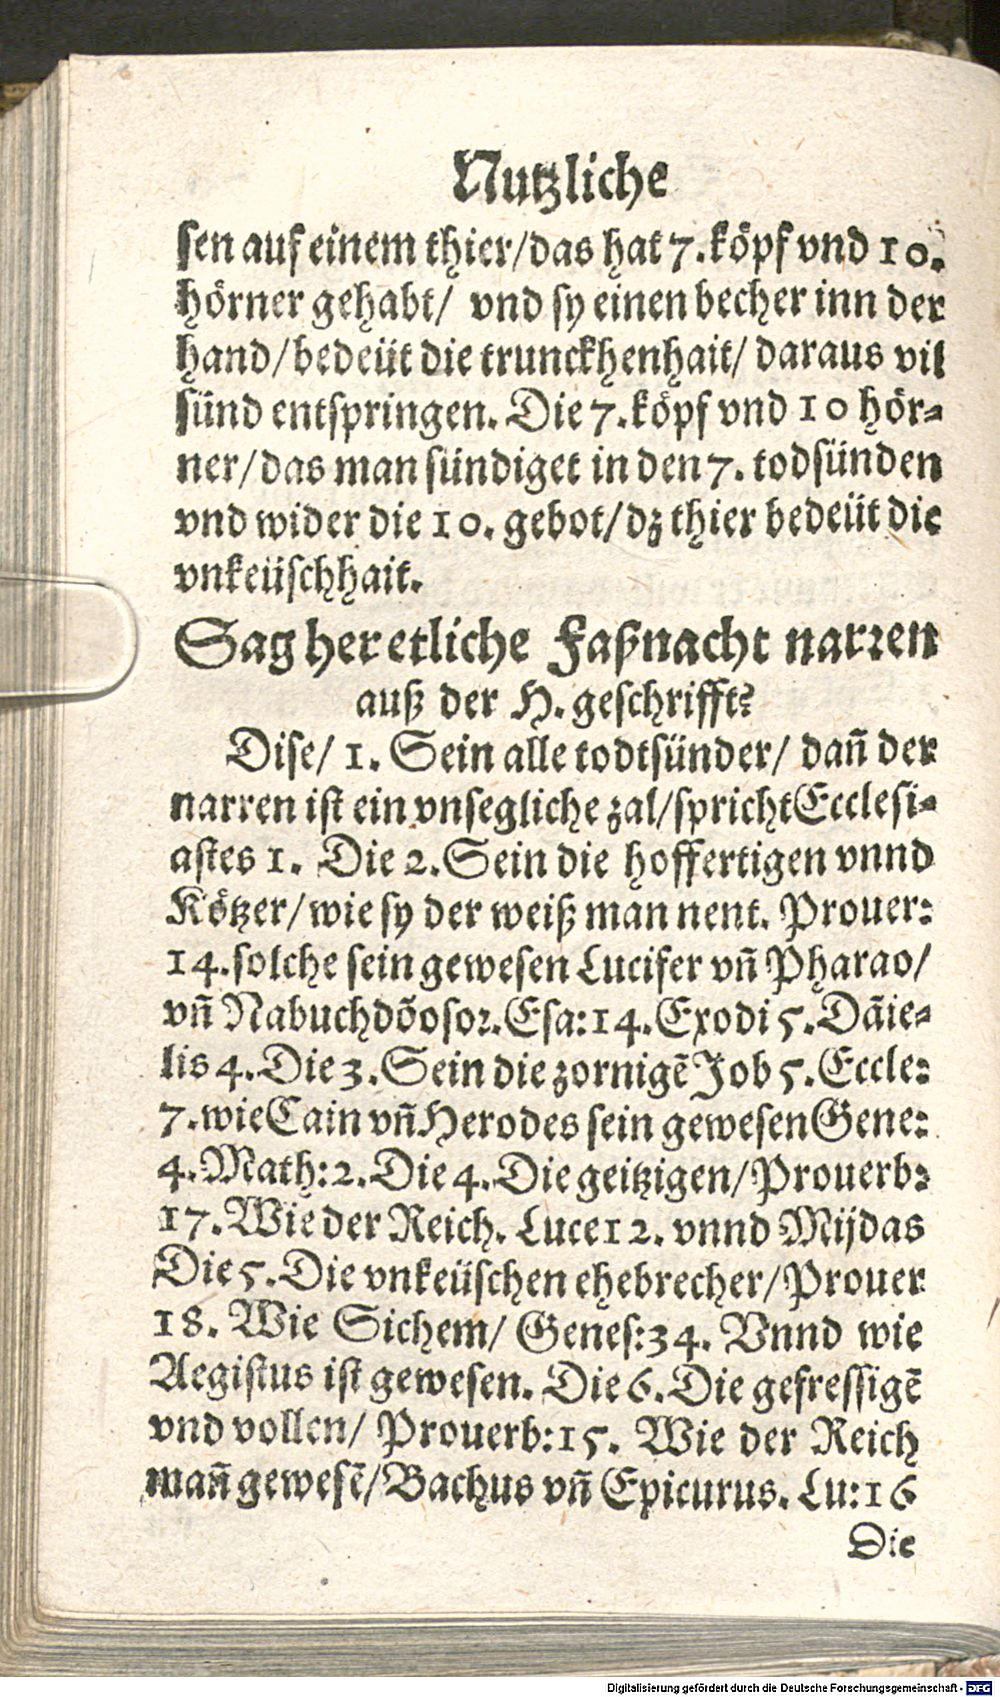 Nutzliche
sen auf einem thier/das hat 7.köpf vnd 10.
hörner gehabt/ vnd sy einen becher inn der
hand/bedeüt die trunckhenhait/ daraus vil
sünd entspringen. Die 7.köpf vnd 10 hör⸗
ner/das man sündiget in den 7. todsünden
vnd wider die 10. gebot/dz thier bedeüt die
vnkeüschhait.
Sag her etliche Faßnacht narren
auß der H. geschrifft?
Dise/ 1. Sein alle todtsünder/ dañ der
narren ist ein vnsegliche zal/sprichtEcclesi⸗
astes 1. Die 2.Sein die hoffertigen vnnd
Kötzer/wie sy der weiß man nent. Prouer:
14.solche sein gewesen Lucifer vñ Pharao/
vñ Nabuchdõosor.Esa:14.Exodi 5.Dãie⸗
lis 4.Die 3.Sein die zornigẽ Job 5.Eccle:
7.wieCain vñ Herodes sein gewesenGene:
4.Math:2.Die 4.Die geitzigen/Prouerb:
17.Wie der Reich. Luce12. vnnd Mijdas
Die 5.Die vnkeüschen ehebrecher/Prouer
18. Wie Sichem/ Genes:34. Vnnd wie
Aegistus ist gewesen. Die 6.Die gefressigẽ
vnd vollen/ Prouerb:15. Wie der Reich
mañ gewesẽ/Bachus vñ Epicurus. Lu:16
Die
Digitalisierung gefördert durch die Deutsche Forschungsgemeinschaft - DFG